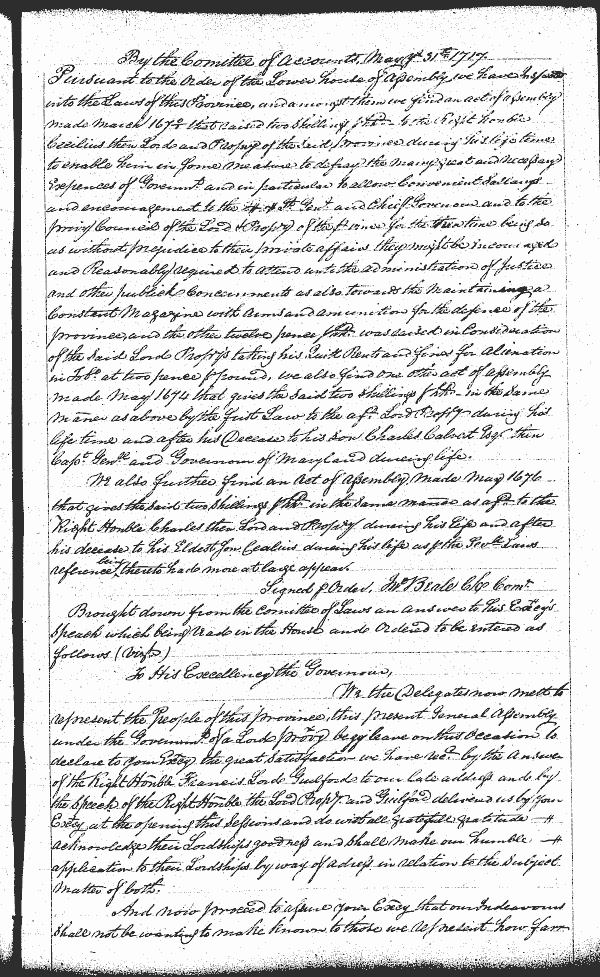 By the Comittee of Accounts, May ye 31st 1717.
Pursuant to the Order of the Lower house of Assembly we have Inspected
into the Laws of this Province, and amongst them we find an act of assembly
made March 1671/2 that raised two shilling p hhd to the Right honble
Cecilius then Lord and Propry of the said province during his life time
to enable him in some measure to defray the many great and necessary
Expences of Governmt and in particular to allow Convenient Sallarys
and encouragement to the Lt Genl and Chief Governour and to the
privy Councill of the Lord Propry of the sd vince for the time being so
as without prejudice to their private affairs they might be incouraged
and Reasonably required to attend unto the administration of Justice
and other publick Concernments as also towards the Maintaining a
Constant Magazine with Arms and amunition for the defence of the
province, and the other twelve pence p hhd was raised in Consideration
of the Said Lord Propry's taking his Quitt Rents and fines for Alienation
in Tobo at two pence p pound, we also find one other act of assembly
made May 1674 that gives the said two shillings p hhd in the same
maner as above by the first Law to the afd Lord Propry during his
life time and after his Decease to his son Charles Calvert Esqr then
Capt Genll and Governour of Maryland during life.
We also further find an Act of Assembly Made May 1676
that gives the said two shillings p hhd in the same maner as afd to the
Right Honble Charles then Lord and Propry during his life and after
his decease to his Eldest son Cecilius during his life as p the Sevll Laws
reference being thereto had more at large appear.
Signed p Order, Mr Beale Clk Comt
Brought down from the Comittee of Laws an answer to his Excys
Speach which being Read in the House and Ordered to be entered as
follows (vizt)
To His Excellency the Governour,
We the Delegates now mett to
represent the People of this province, this present General Assembly
under the Governmt of a Lord propry begg leave on this Occasion to
declare to your Excy the great satisfaction we have recd by the Answer
of the Right Honble Francis Lord Guilford to our late address and by
the speech of the Right Honble the Lord Propry and Guilford delivered us by your
Excy at the opening this Sessions and do with all gratefull gratitude
acknowledge their Lordships goodness and shall make our humble
application to their Lordships by way of adress in relation to the Subject
Matter of both.
And now proceed to assure your Excy that our Indeavours
shall not be wanting to make known to those we represent how farr